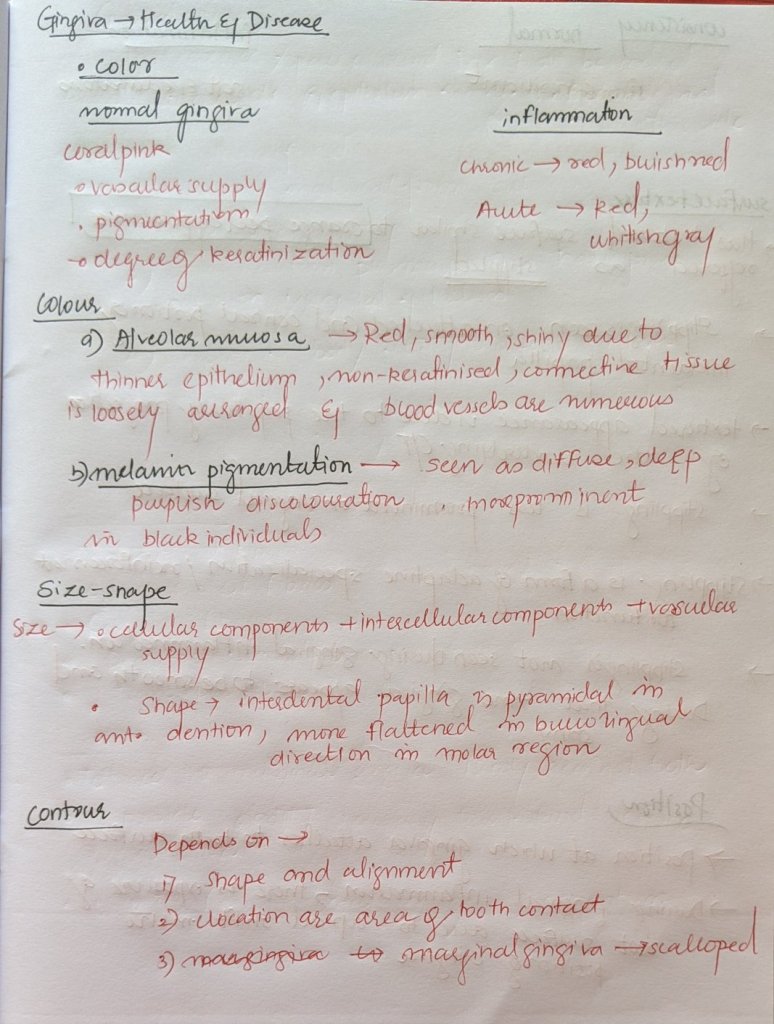 Gingiva → Health & Disease
• color
normal gingiva
inflammation
coralpink
chronic → red, buiishred
• vascular supply
Acute → Red,
• pigmentation
whitish gray
→ degree of keratinization
Colour
a) Alveolar mucosa → Red, smooth, shiny due to
thinner epithelium, non-keratinised, connective tissue
is loosely arranged & blood vessels are numerous
b) melanin pigmentation → seen as diffuse, deep
purplish discolouration . more prominent
in black individuals
Size-shape
Size → • cellular components + intercellular components + vascular
supply
• Shape → interdental papilla is pyramidal in
ant. dention, more flattened in buccolingual
direction in molar region
Contour
Depends on →
1) Shape and alignment
2) location are area of tooth contact
3) marginal gingiva → scalloped